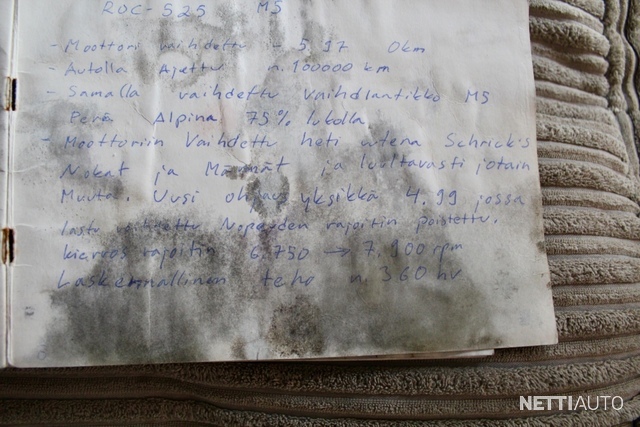 ROC-525 M5
- Moottori vaihdettu - 5.97 0km
- Autolla Ajettu n. 100000 km
- Samalla vaihdettu vaihdlaatikko M5
Perä Alpina 75% lukolla
- Moottoriin Vaihdettu heti utena Schrick's
Nokat ja Männät ja luultavasti jotain
Muuta. Uusi ohjaus yksikkö 4.99 jossa
lastu vaihdettu Nopeuden rajoitin poistettu.
kierros rajoitin 6.750 → 7.900 rpm
Laskennallinen teho n. 360 hv
NETTIAUTO